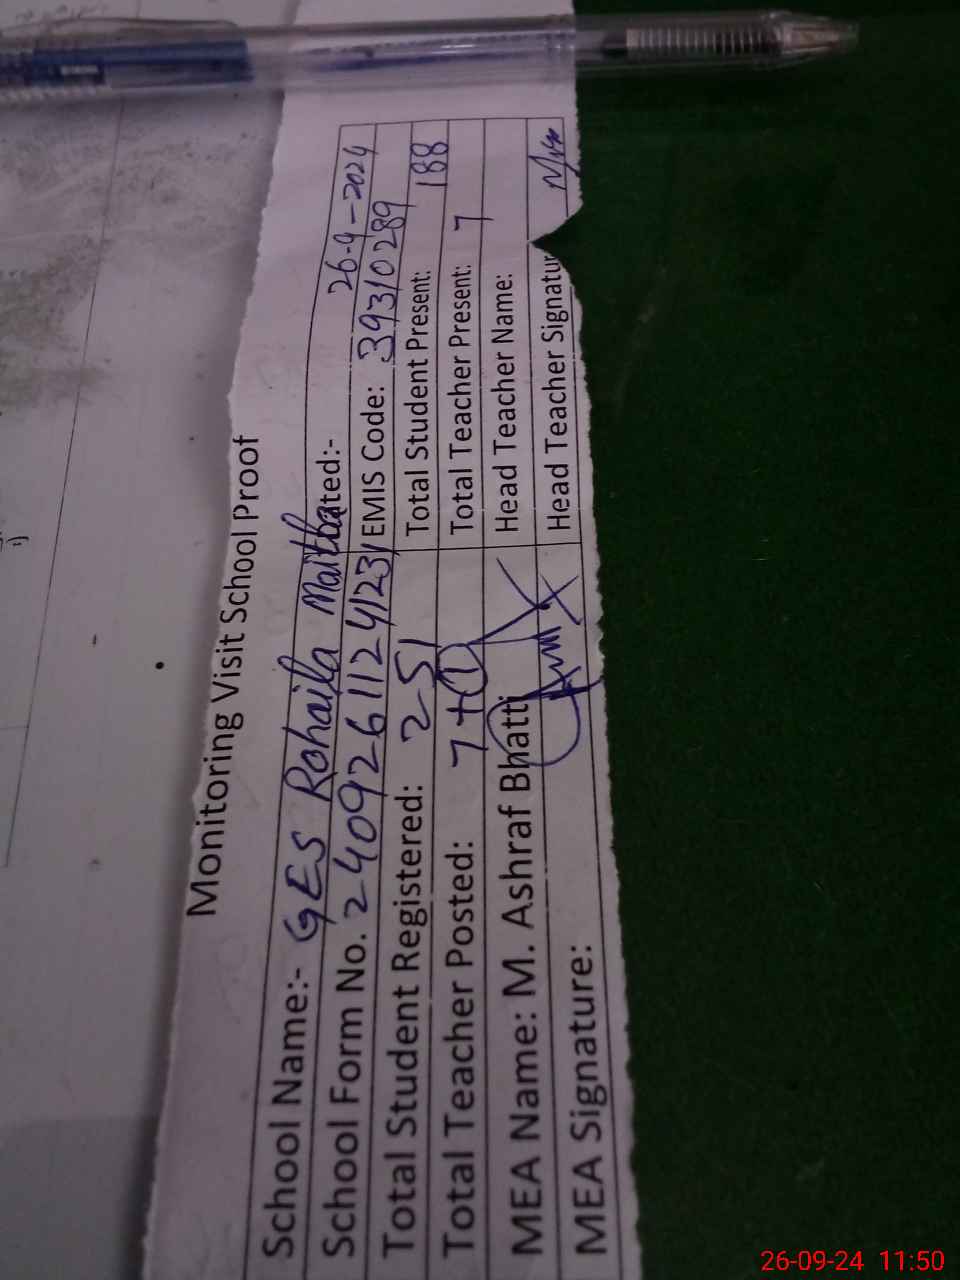 Monitoring Visit School Proof
School Name:- GES Rohaila ated:- 26-9-2024
School Form No. 2409261124123 EMIS Code: 39310289
Total Student Registered: 251 Total Student Present: 188
Total Teacher Posted: 7+1 Total Teacher Present: 7
MEA Name: M. Ashraf Bhatti Head Teacher Name:
MEA Signature: Head Teacher Signatur
26-09-24 11:50